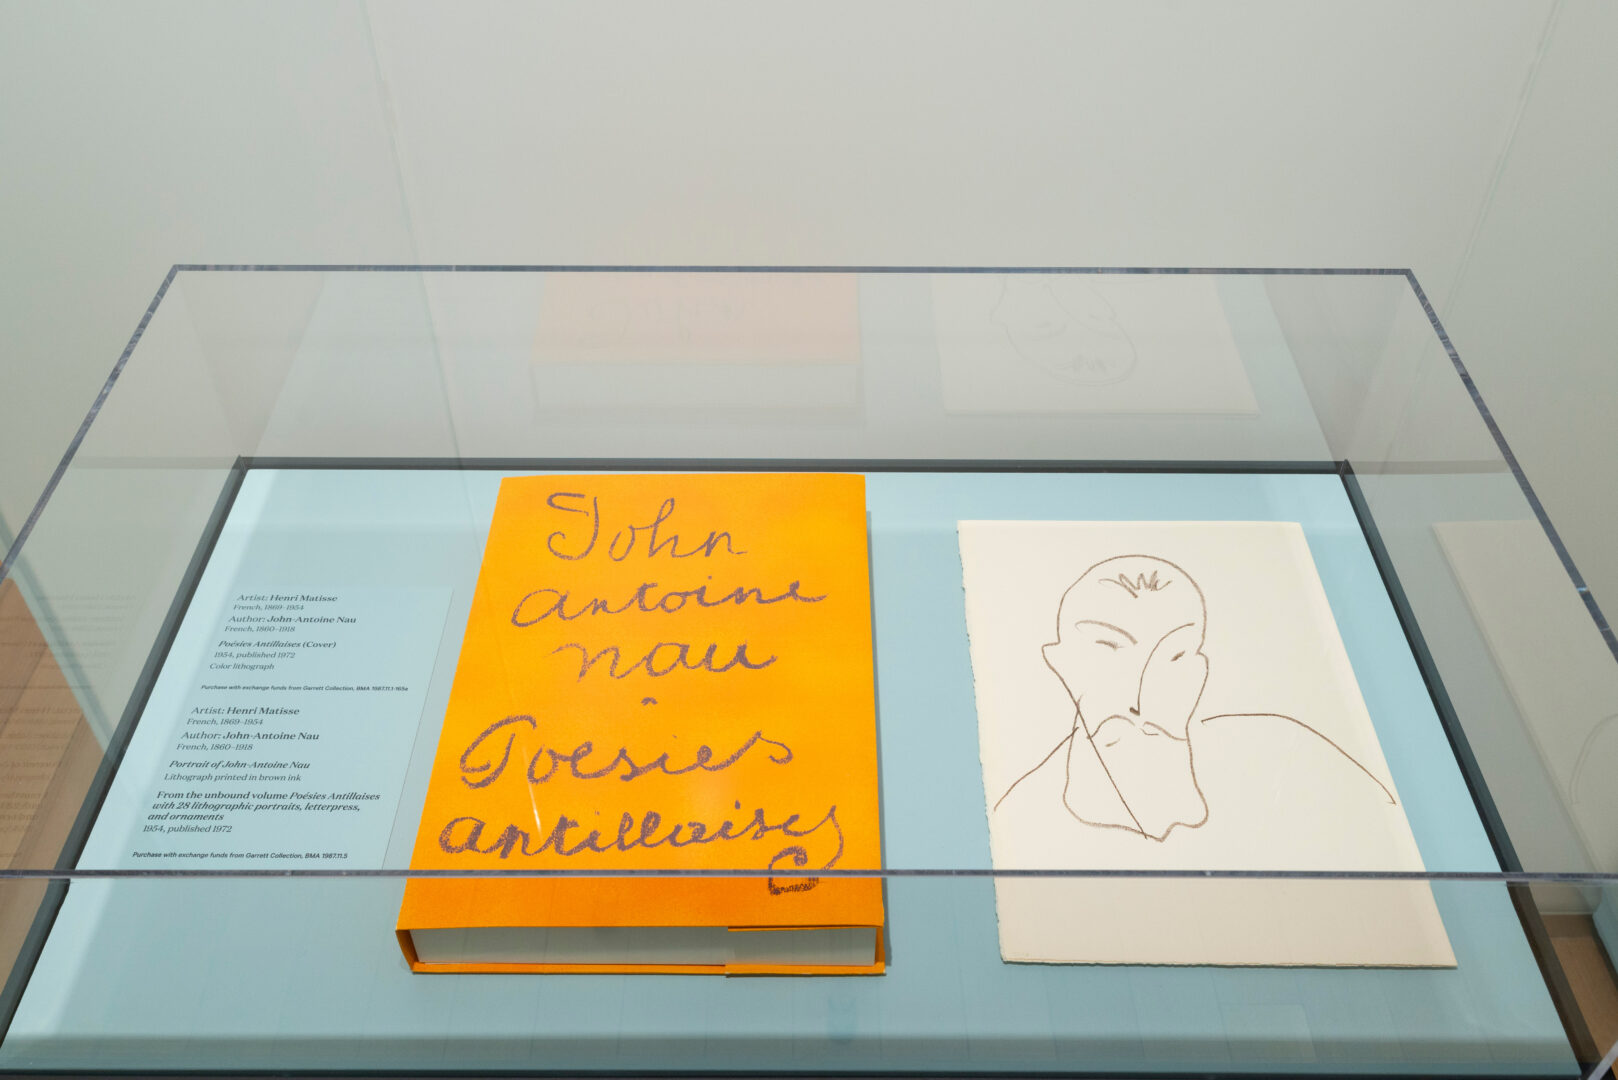 Artist: Henri Matisse
French, 1869–1954
Author: John-Antoine Nau
French, 1860–1918
Poésies Antillaises (Cover)
1954, published 1972
Color lithograph
Purchase with exchange funds from Garrett Collection, BMA 1987.11.1-165a
Artist: Henri Matisse
French, 1869–1954
Author: John-Antoine Nau
French, 1860–1918
Portrait of John-Antoine Nau
Lithograph printed in brown ink
From the unbound volume Poésies Antillaises
with 28 lithographic portraits, letterpress,
and ornaments
1954, published 1972
Purchase with exchange funds from Garrett Collection, BMA 1987.11.5
John
antoine
nau
Poesies
antillaises